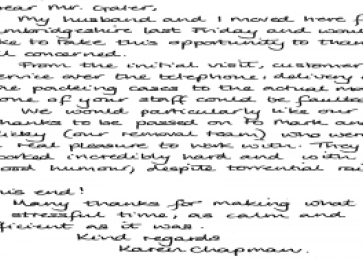 ear Mr. Gater,
My husband and I moved here f
mbridgeshire last Friday and woul
ke to take this opportunity to than
ll concerned.
From the initial visit, customer
ervice over the telephone, delivery
he packing cases to the actual mo
one of your staff could be faulte
We would particularly like our
hanks to be passed on to Mark an
(our removal team) who wer
real pleasure to work with. They
orked incredibly hard and with
ood humour, despite torrential rai
is end!
Many thanks for making what
stressful time, as calm and
ficient as it was.
Kind regards
Karen Chapman.